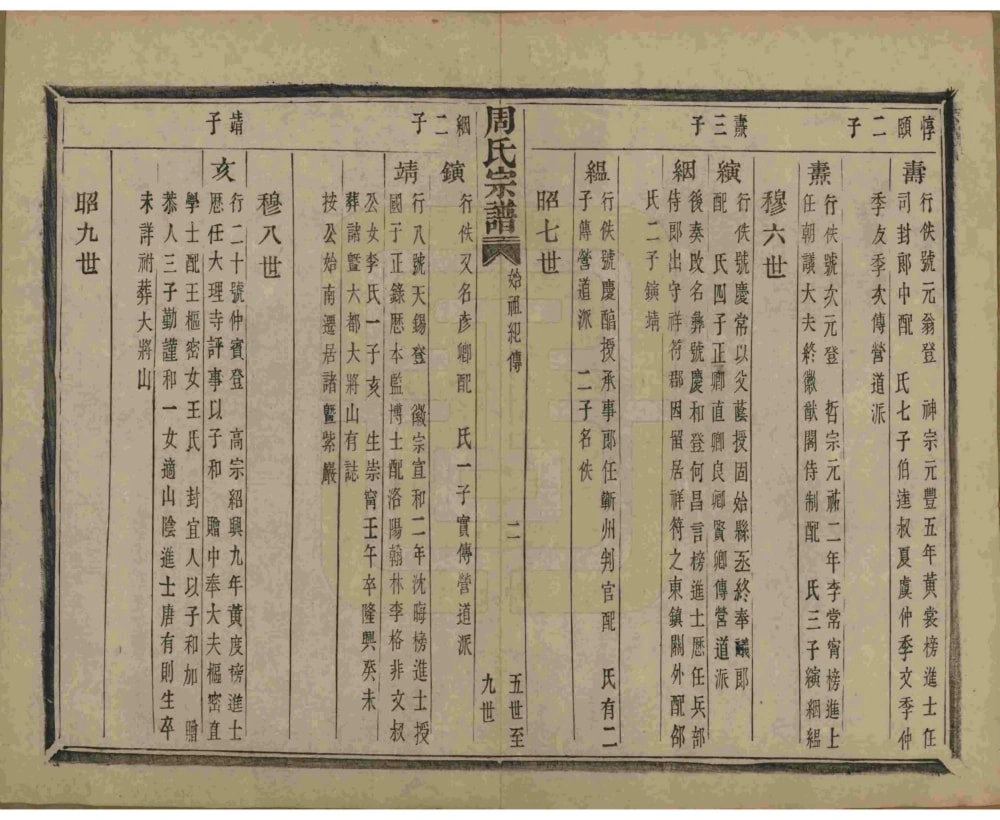 惇頤二子
壽
行佚號元翁登　神宗元豐五年黃裳榜進士任
司封郎中配　氏七子伯逵叔夏虞仲季文季仲
季友季次傳營道派
穆六世
燾三子
燾
行佚號次元登　哲宗元祐二年李常甯榜進上
任朝議大夫終徽猷閣侍制配　氏三子縯絪縕
縯
行佚號慶常以父蔭授固始縣丞終奉議郎
配　氏四子正卿直卿良卿賢卿傳營道派
絪
後奏改名彝號慶和登何昌言榜進士歷任兵部
侍郎出守祥符郡因留居祥符之東鎮關外配邵
氏二子鐀靖
縕
行佚號慶醕授承事郎任蘄州判官配　氏有二
子傳營道派　二子名佚
昭七世
周氏宗譜
始祖紀傳
二
五世至
九世
絪二子
鐀
行佚又名彥卿配　氏一子實傳營道派
靖
行八號天錫登　徽宗宣和二年沈晦榜進士授
國子正錄歷本監博士配洛陽翰林李格非文叔
公女李氏一子亥　生崇甯壬午卒隆興癸未
葬諸暨大都大將山有誌
按公始南遷居諸暨紫巖
穆八世
靖子
亥
行二十號仲賓登　高宗紹興九年黃度榜進士
歷任大理寺評事以子和　贈中奉大夫樞密直
學士配王樞密女王氏　封宜人以子和加　贈
恭人三子勤謹和一女適山陰進士唐有則生卒
未詳祔葬大將山
昭九世